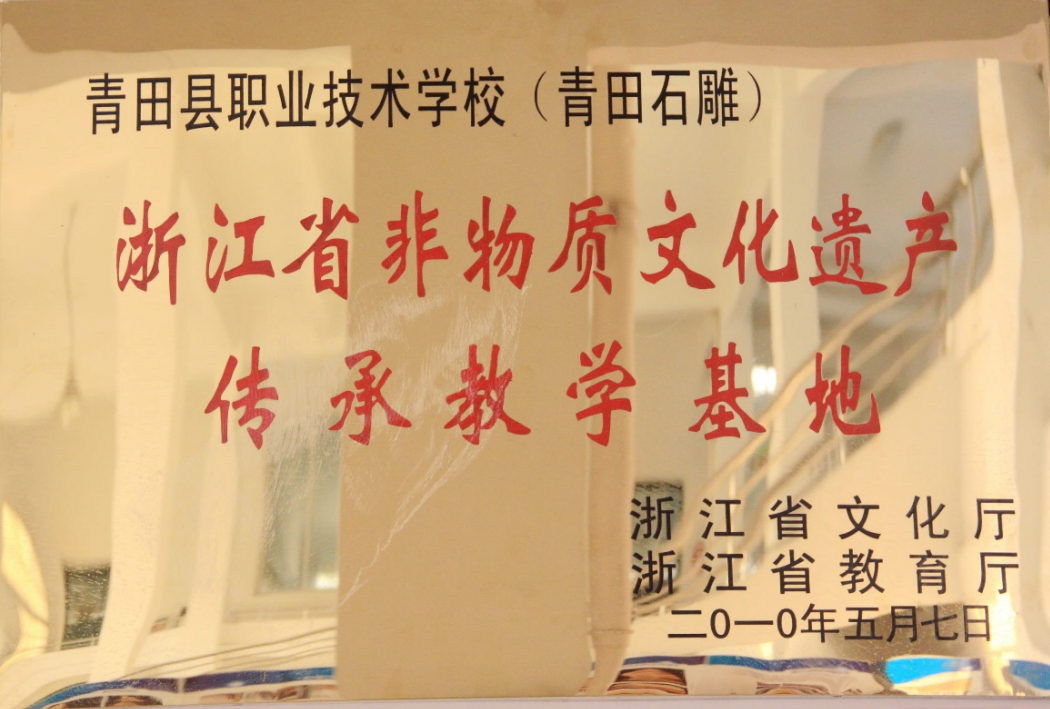 青田县职业技术学校（青田石雕）
浙江省非物质文化遗产
传承教学基地
浙江省文化厅
浙江省教育厅
二0一0年五月七日